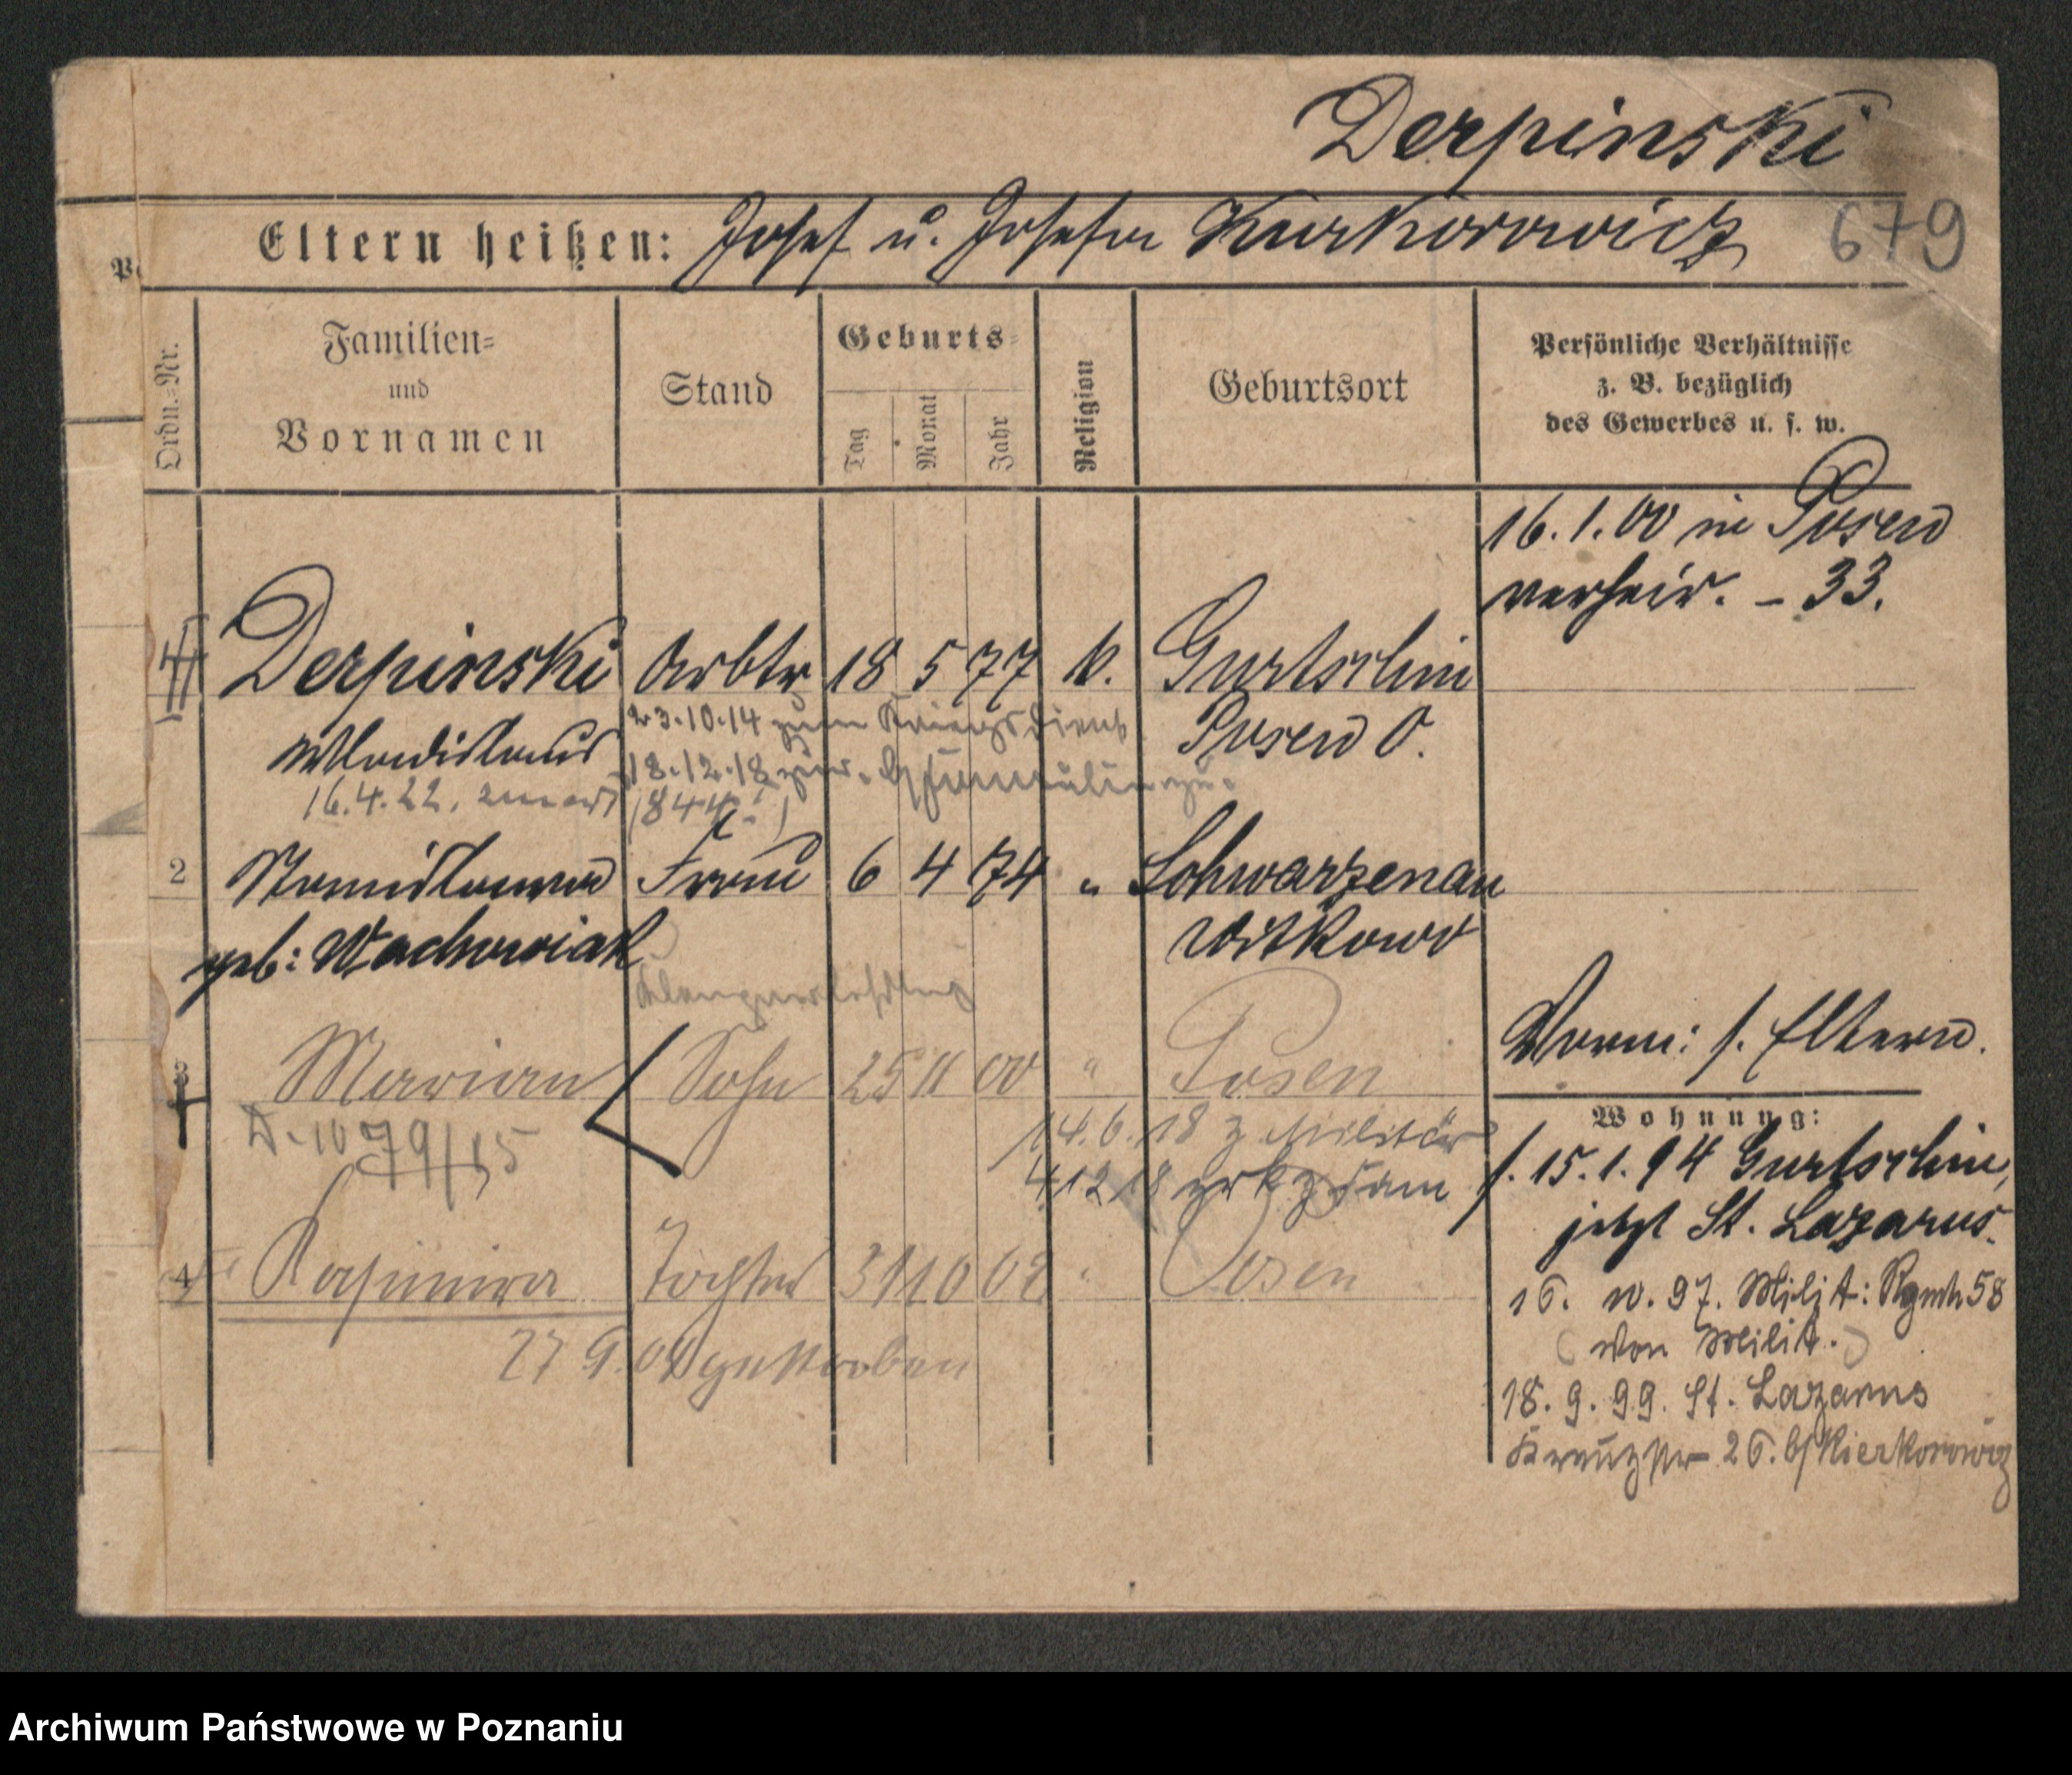 Derpinski
Eltern heißen: Josef u. Josefa Kurkorowicz
679
Ordn.=Nr.
Familien=
und
Vornamen
Stand
Geburts=
Tag
Monat
Jahr
Religion
Geburtsort
Persönliche Verhältnisse
z. B. bezüglich
des Gewerbes u. s. w.
16.1.00 in Posen
verheir. – 33.
Derpinski Arbtr 18 5 77 k. Gurtschin
Wladislaus 23.10.14 zum Kriegsdienst Posen O.
16.4.22. 18.12.18 zur.
2 Stanislawa Frau 6 4 74 " Schwarzenau
geb: Wachowiak Witkowo
3 Marian Sohn 25 11 00 " Posen
Vorm: s. Eltern.
14.6.18 z Militär
4 12 18 zrk z Fam
Wohnung:
s. 15.1.94 Gurtschin,
jetzt St. Lazarus.
4 Kasimira Tochter 31 10 02 " Posen
27 9. gestorben
16. 10. 97. Milit: Rgmt 58
(von Milit.)
18. 9. 99. St. Lazarus
Kreuzstr 26. b/ Kierkorowicz
Archiwum Państwowe w Poznaniu